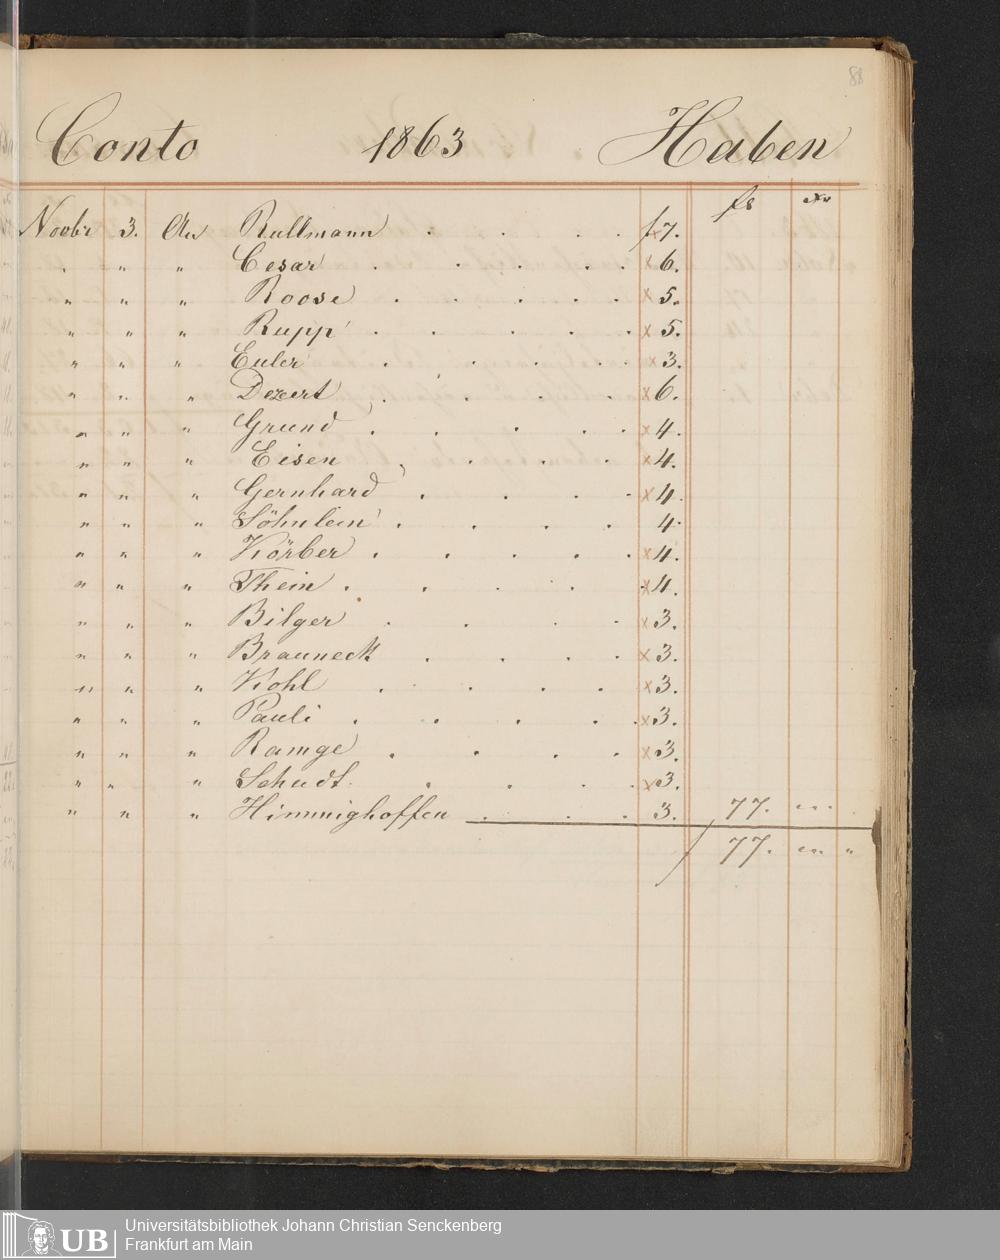 88
Conto 1863 Haben
fs xr
Novbr 3. An Rullmann . . . . f 7.
" " " Cesar . . . . . x 6.
" " " Roose . . . . . x 5.
" " " Rupp . . . . . x 5.
" " " Euler . . . . . x 3.
" " " Dezert . . . . x 6.
" " " Grund . . . . . x 4.
" " " Eisen . . . . x 4.
" " " Gernhard . . . . x 4.
" " " Söhnlein . . . . 4.
" " " Körber . . . . . x 4.
" " " Thein . . . . x 4.
" " " Bilger . . . . x 3.
" " " Brauneck . . . . x 3.
" " " Kohl . . . . x 3.
" " " Pauli . . . . . x 3.
" " " Ramge . . . . x 3.
" " " Schudt . . . . x 3.
" " " Himmighoffen . . . 3. 77.
f 77. "
Universitätsbibliothek Johann Christian Senckenberg
Frankfurt am Main
UB